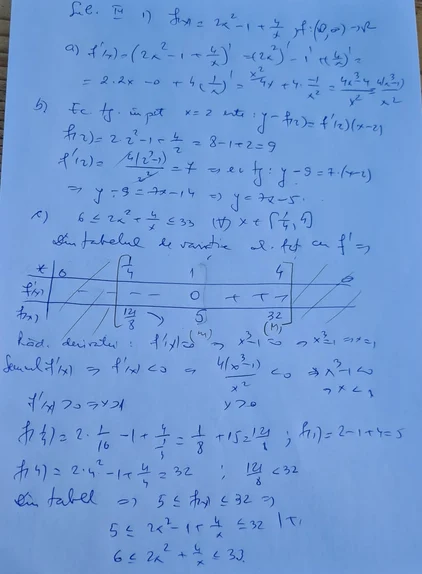 Sub. III 1) f(x) = 2x² - 1 + 4/x , f: (0,∞) → R
a) f'(x) = (2x² - 1 + 4/x)' = (2x²)' - 1' + (4/x)' =
= 2·2x - 0 + 4(1/x)' = 4x + 4·(-1/x²) = (4x³-4)/x² = 4(x³-1)/x²
b) Ec. tg. în pct x = 2 este: y - f(2) = f'(2)(x-2)
f(2) = 2·2² - 1 + 4/2 = 8 - 1 + 2 = 9
f'(2) = 4(2³-1)/2² = 7 ⇒ ec tg: y - 9 = 7·(x-2)
⇒ y - 9 = 7x - 14 ⇒ y = 7x - 5.
c) 6 ≤ 2x² + 4/x ≤ 33 (∀) x ∈ [1/4, 4]
Din tabelul de variație al fct cu f' ⇒
x 0 1/4 1 4 ∞
f'(x) - - - - 0 + + +
f(x) 121/8 ↘ 5 (m) 32 (M)
Răd. derivatei: f'(x)=0 ⇒ x³-1=0 ⇒ x³=1 ⇒ x=1
Semnul f'(x) ⇒ f'(x) < 0 ⇒ 4(x³-1)/x² < 0 ⇒ x³-1<0
⇒ x < 1
f'(x) > 0 ⇒ x>1 x>0
f(1/4) = 2·1/16 - 1 + 4/(1/4) = 1/8 + 15 = 121/8 ; f(1) = 2-1+4 = 5
f(4) = 2·4² - 1 + 4/4 = 32 ; 121/8 < 32
Din tabel ⇒ 5 ≤ f(x) ≤ 32 ⇒
5 ≤ 2x² - 1 + 4/x ≤ 32 |+1
6 ≤ 2x² + 4/x ≤ 33.